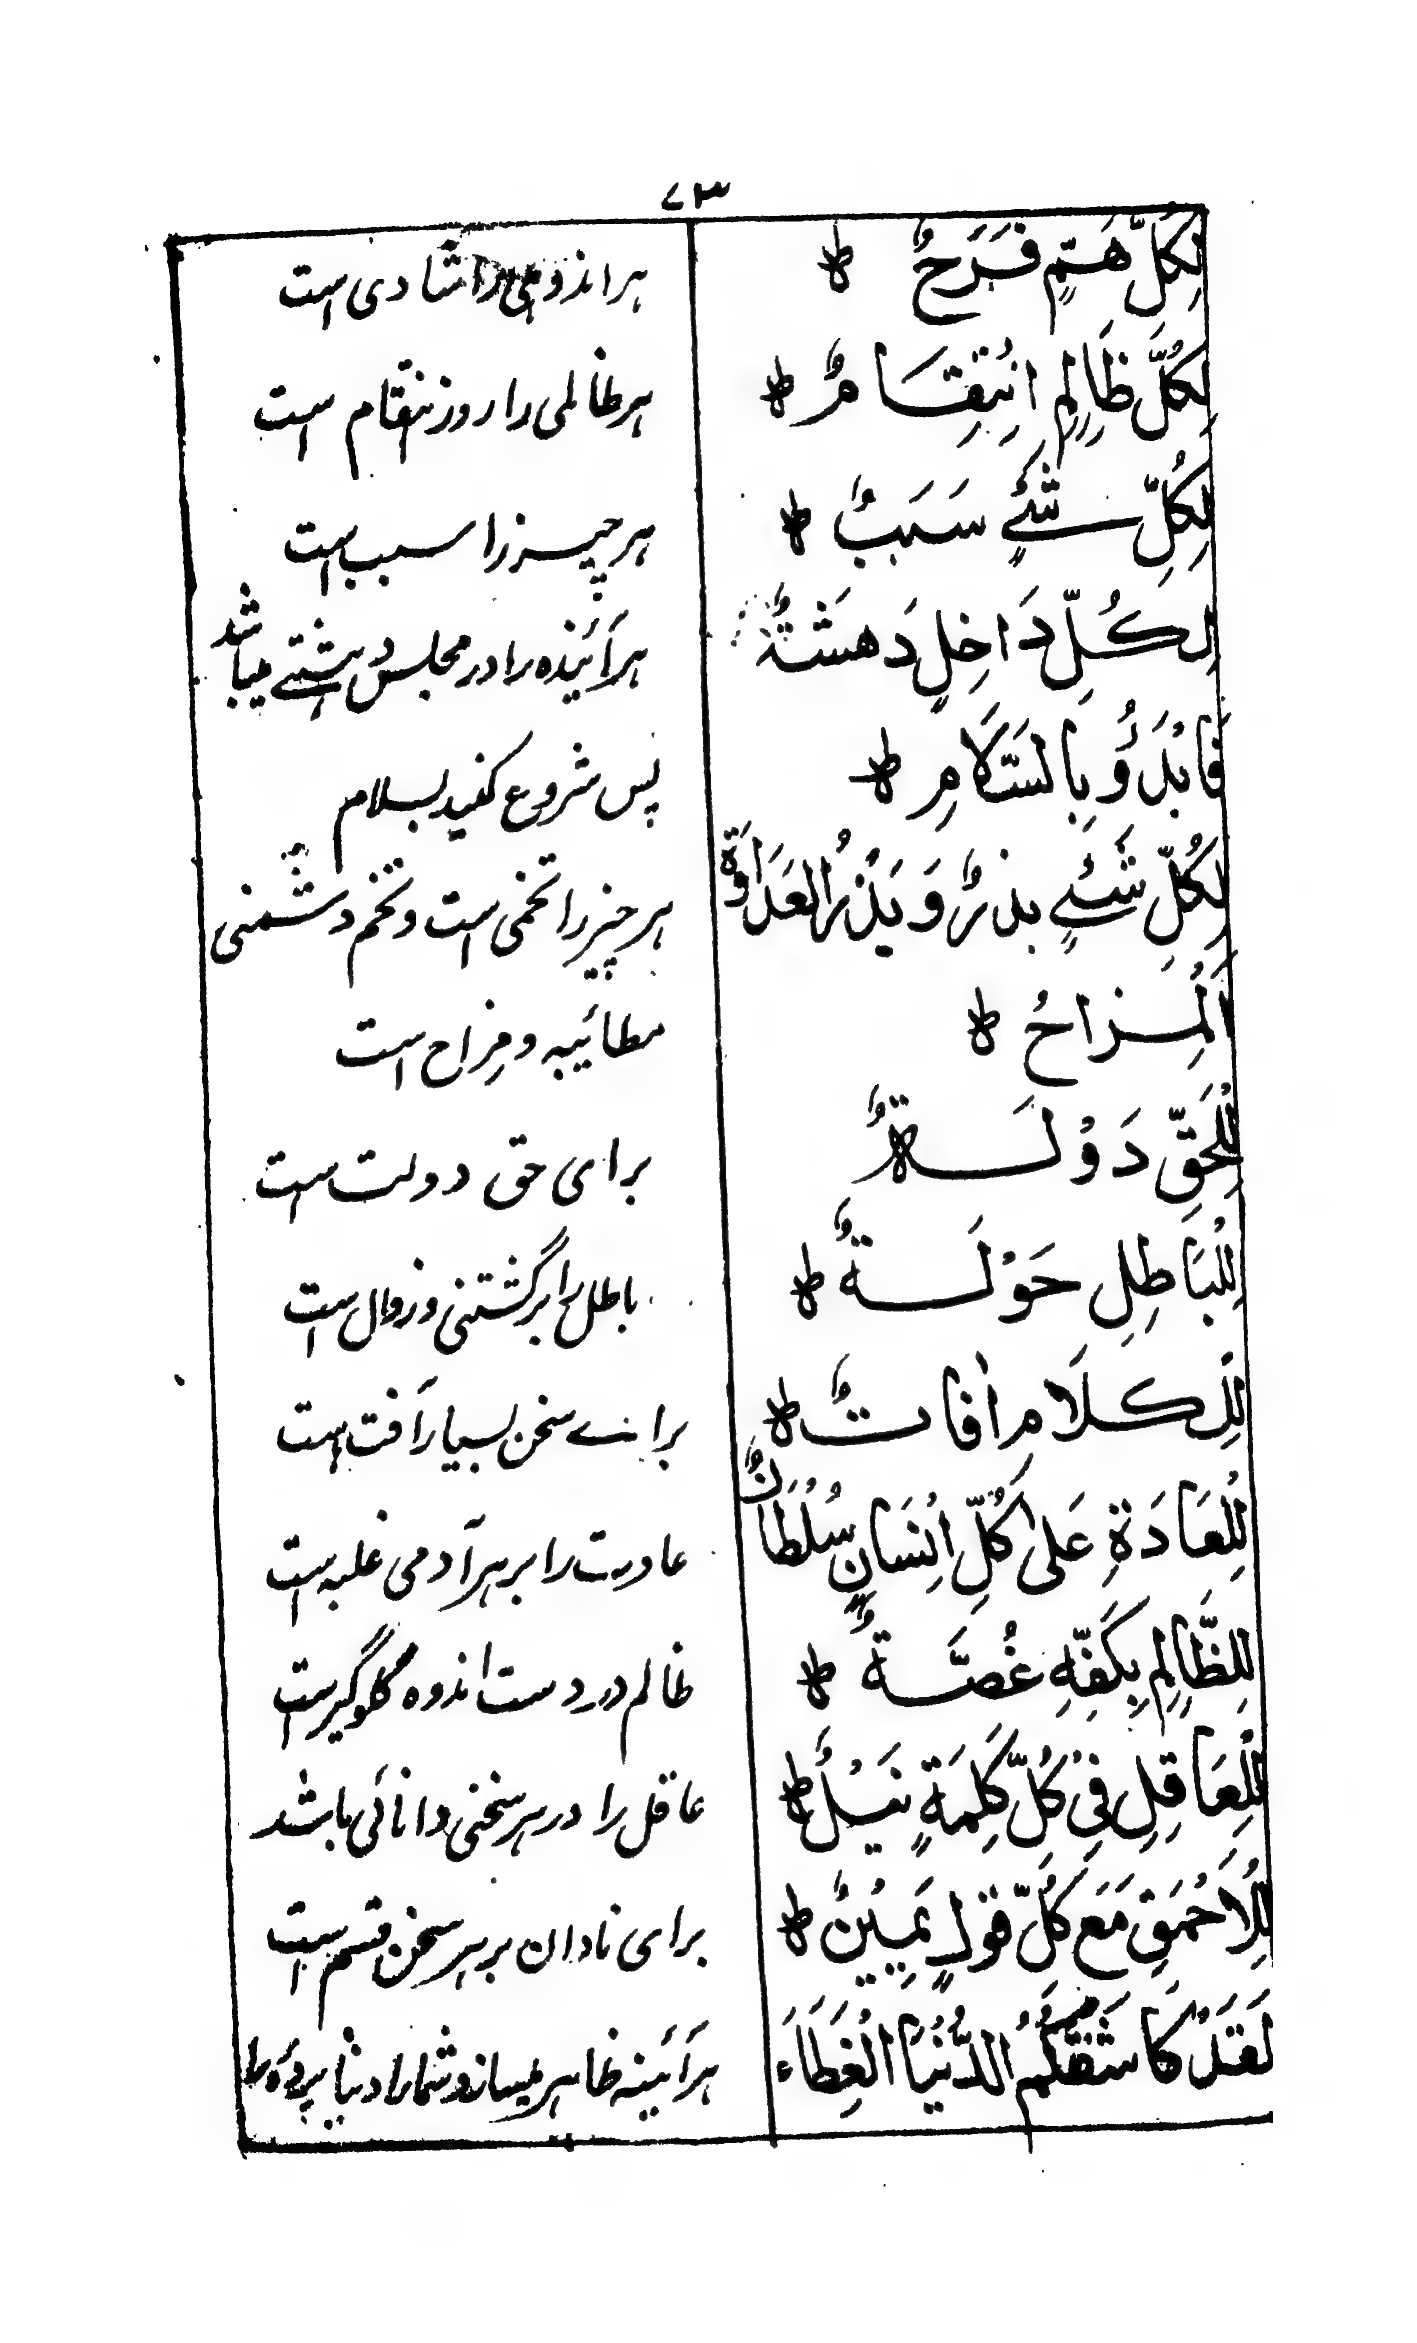 ۷۳
لِکُلِّ هَمٍّ فَرَحٌ ط
هر اندوهی را شادی است
لِکُلِّ ظَالِمٍ اِنْتِقَامٌ ط
هر ظالمی را روز انتقام است
لِکُلِّ شَیْءٍ سَبَبٌ ط
هر چیز را سبب است
لِکُلِّ دَاخِلٍ دَهشَتَةٌ
هر آئنده را در مجلس دهشتے میباشد
فَابْدَؤُ بِالسَّلَامِ ط
پس شروع کنید بسلام
لِکُلِّ شَیْءٍ بِذْرٌ وَ بَذْرُ الْعَدَاوَةِ
هر چیز را تخمی است و تخم دشمنی
اَلْمِزَاحُ ط
مطائبه و مزاح است
لِلْحَقِّ دَوْلَةٌ ط
برای حق دولت است
لِلْبَاطِلِ حَوْلَةٌ ط
باطل را برگشتنی و زوال است
لِلْکَلَامِ اٰفَاتٌ ط
براے سخن بسیار آفت است
لِلْعَادَةِ عَلیٰ کُلِّ اِنْسَانٍ سُلْطَانٌ
عادت را بر هر آدمی غلبه است
لِلظَّالِمِ بِکَفِّهِ غُصَّةٌ ط
ظالم در دست اندوه گلوگیر است
لِلْعَاقِلِ فِیْ کُلِّ کَلِمَةٍ نَیْلٌ ط
عاقل را در هر سخنی دانائی باشد
لِلْاَحْمَقِ مَعَ کُلِّ قَوْلٍ یَمِیْنٌ ط
برای نادان بر هر سخن قسم است
لَقَدْ کَاشَفَتْکُمُ الدُّنْیَا الْغِطَاءَ
هر آئینه ظاهر میسازد شما را دنیا پرده ط